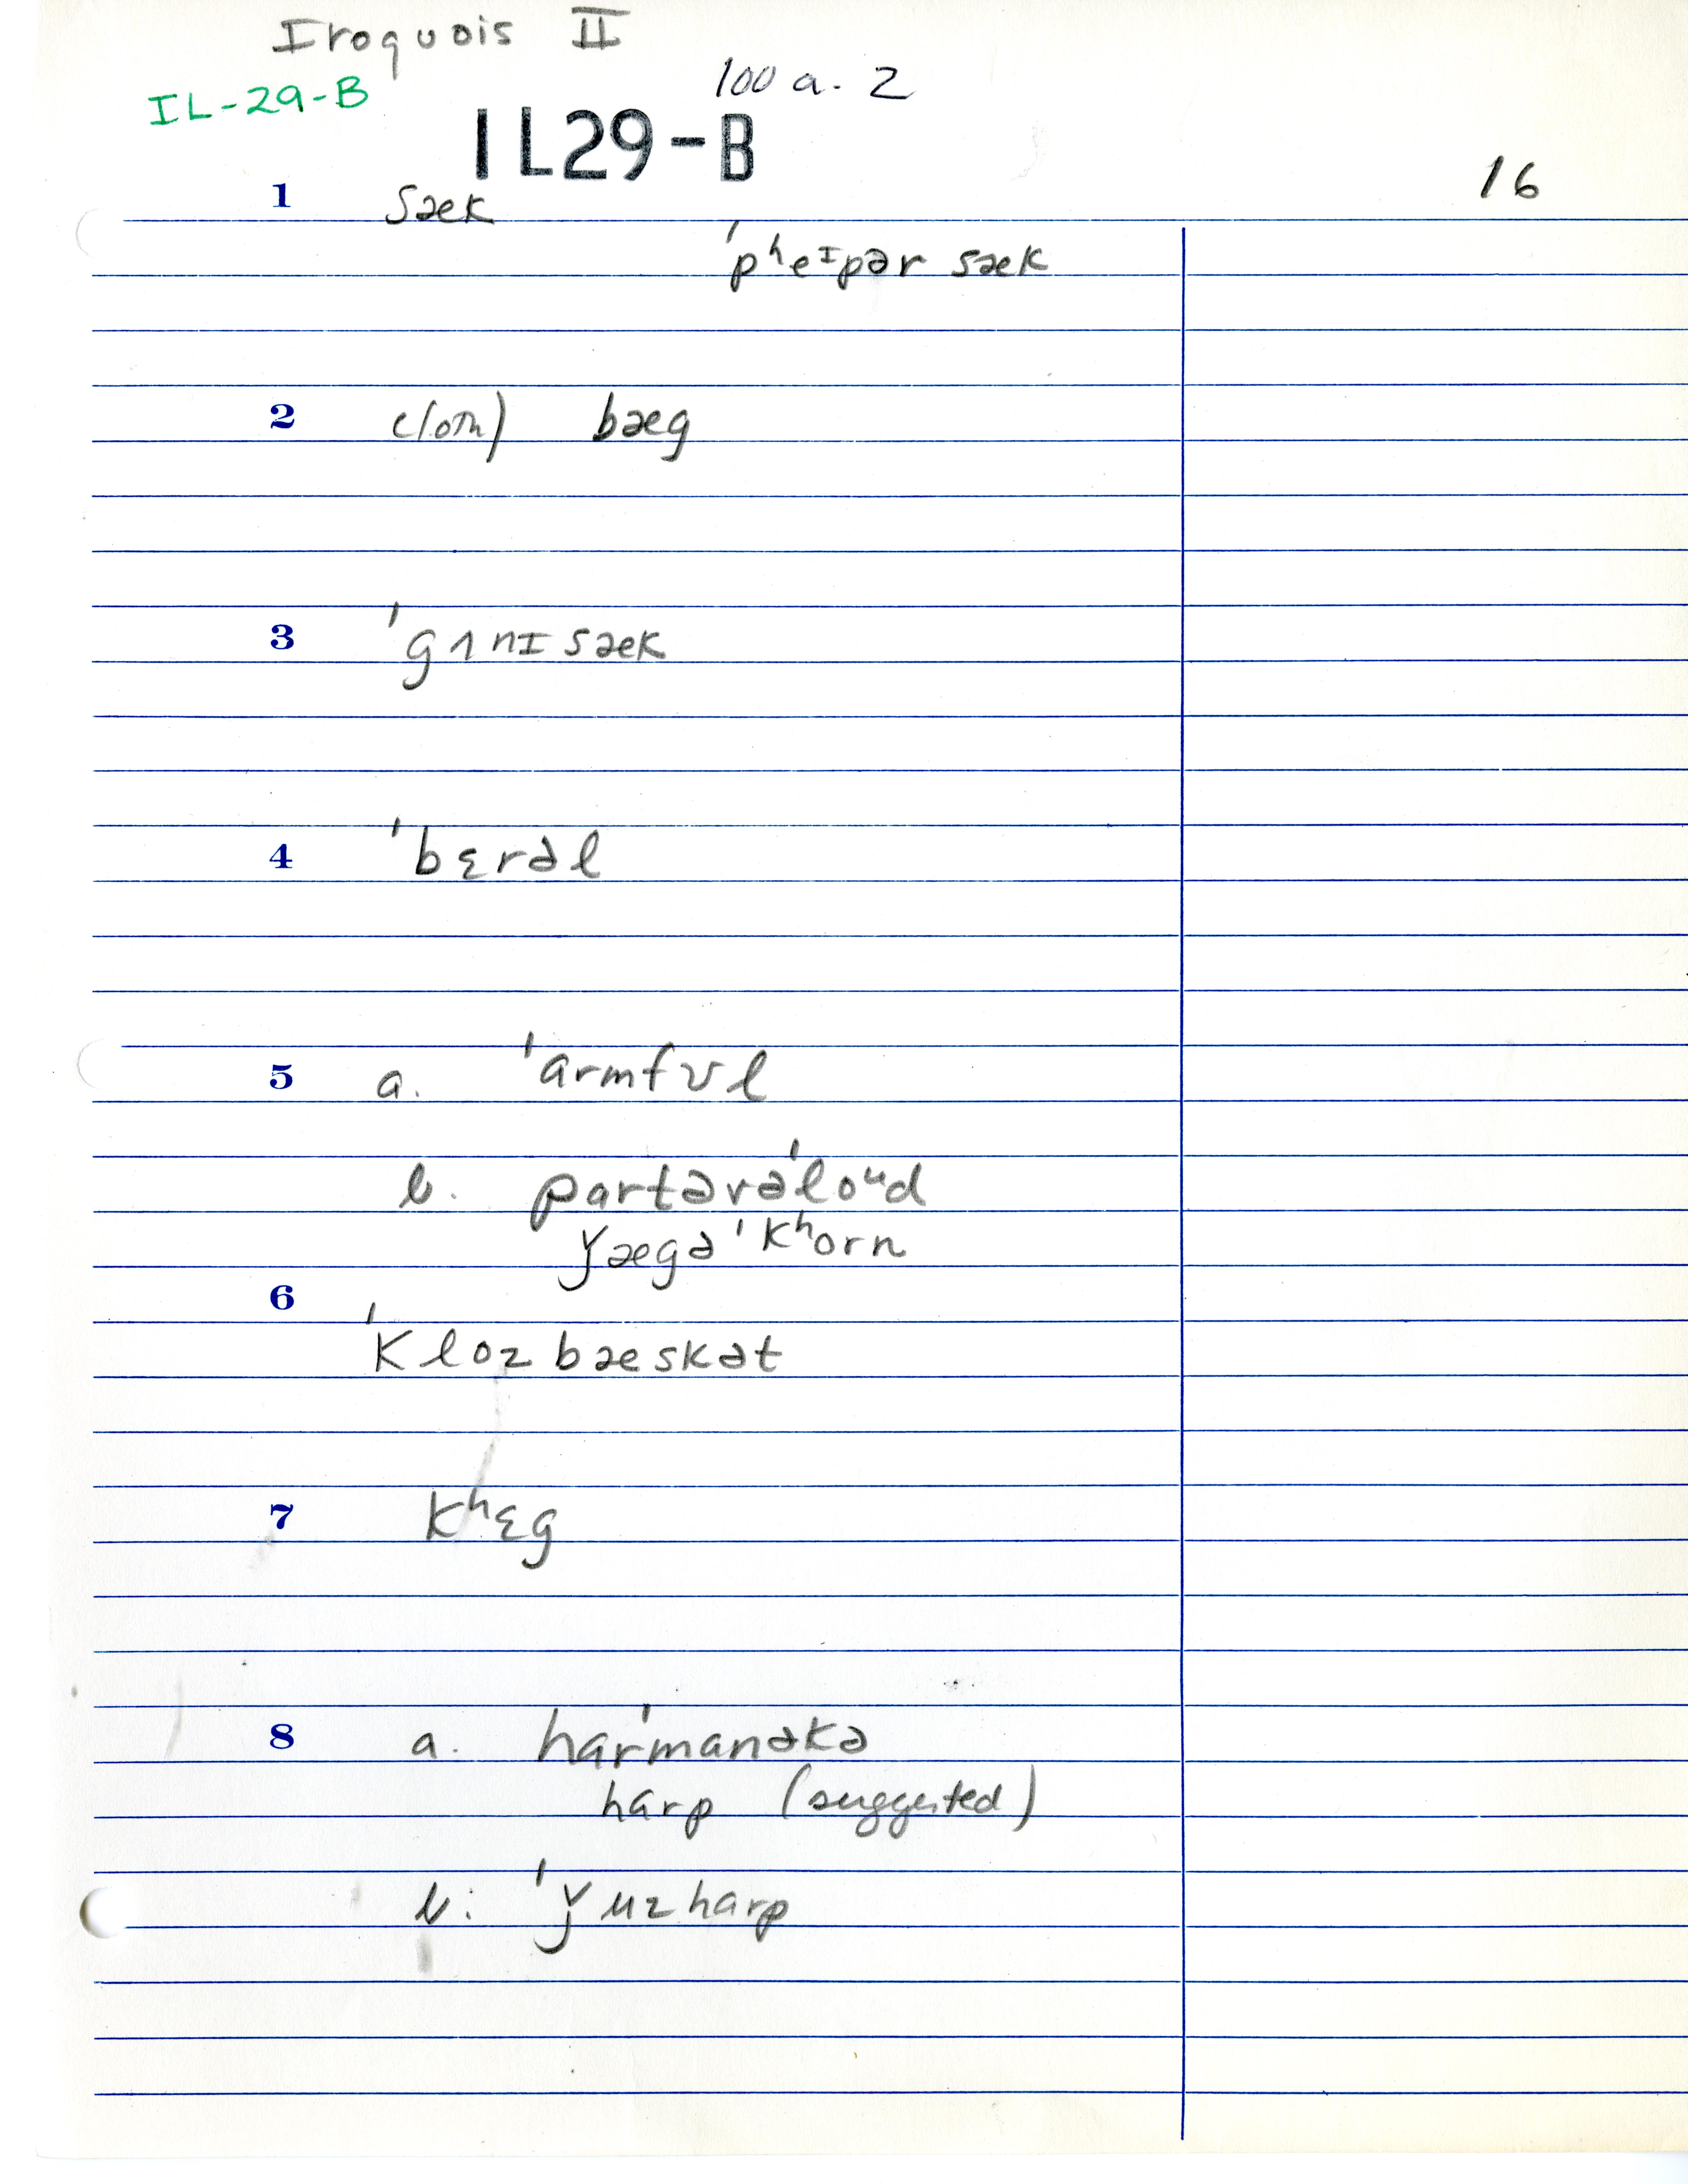 Iroquois II
IL-29-B
100 a. 2
IL29-B
16
1 sæk
ˈpʰeᶦpər sæk
2 cloth) bæg
3 ˈgʌnɪsæk
4 ˈbɛrəl
5 a. ˈarmfʊl
b. partəvəˈloᵘd
ǰægəˈkʰorn
6
ˈklozbæskət
7 kʰɛg
8 a. harˈmanəkə
harp (suggested)
b: ˈǰuzharp